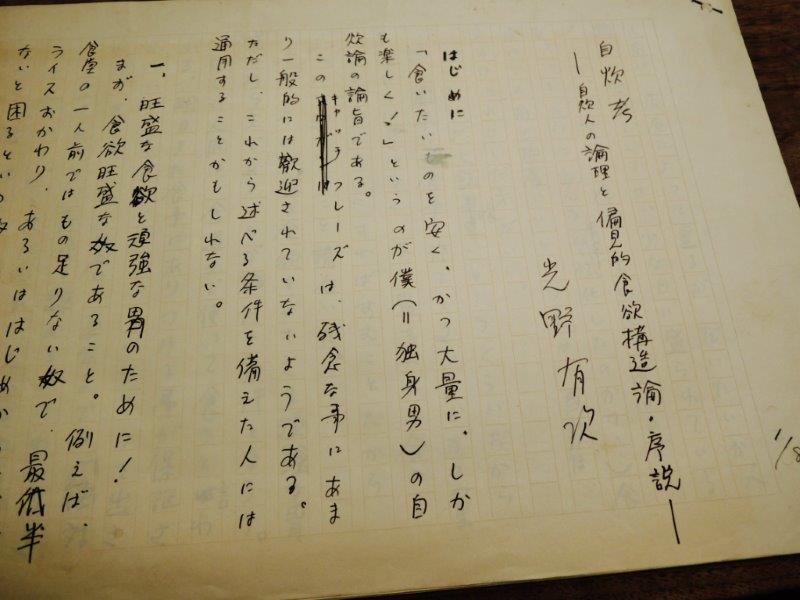 自炊考
―自炊人の論理と偏見的食欲構造論・序説―
光野有次
1/8
はじめに
「食いたいものを安く、かつ大量に。しか
も楽しく!」というのが僕(=独身男)の自
炊論の論旨である。
このキャッチフレーズは、残念な事にあま
り一般的には歓迎されていないようである。
ただし、これから述べる条件を備えた人には
通用することかもしれない。
一、旺盛な食欲と頑強な胃のために!
まず、食欲旺盛な奴であること。例えば、
食堂の一人前ではもの足りない奴で、最低半
ライスおかわり、あるいははじめか
ないと困るという